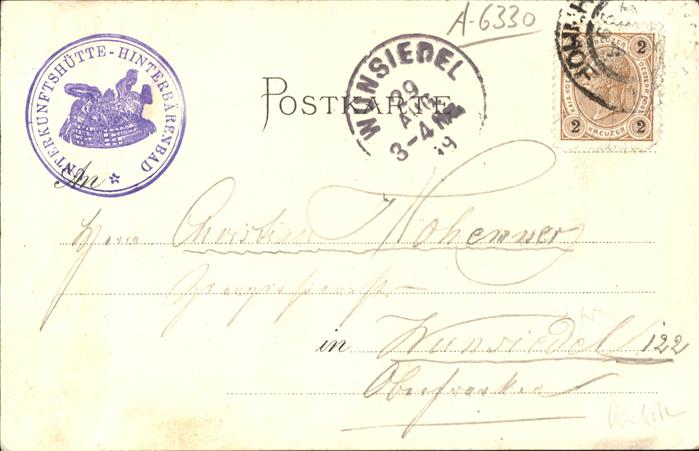 A-6330
UNTERKUNFTSHÜTTE-HINTERBÄRENBAD
WUNSIEDEL
29
AUG
3-4 N
POSTKARTE
2 2
2 2
KREUZER
An
Herrn Christian Hohenner
in Wunsiedel 122
Oberfranken